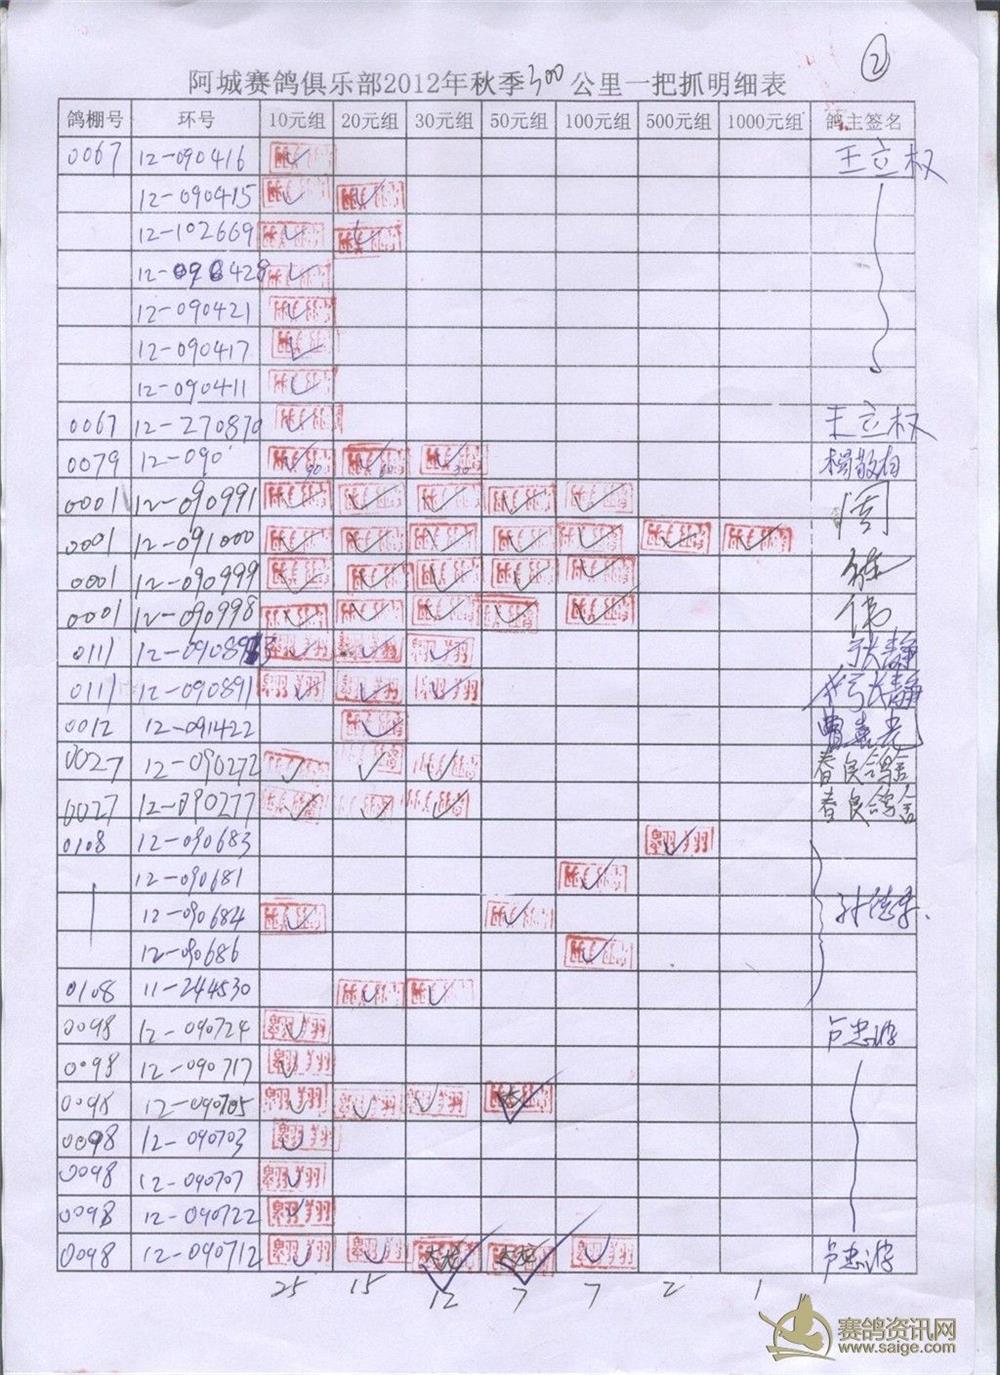 ②
阿城赛鸽俱乐部2012年秋季300公里一把抓明细表
鸽棚号 环号 10元组 20元组 30元组 50元组 100元组 500元组 1000元组 鸽主签名
0067 12-090416 王立权
12-090415
12-102669
12-090428
12-090421
12-090417
12-090411
0067 12-270870 王立权
0079 12-090
0001 12-090991 周
0001 12-091000
0001 12-090999
0001 12-090998
0111 12-090893 张静
0111 12-090891 张静
0012 12-091422 曹嘉光
0027 12-090272 春良鸽舍
0027 12-090277 春良鸽舍
0108 12-090683
12-090681
12-090684
12-090686
0108 11-244530
0098 12-090724 卢忠游
0098 12-090717
0098 12-090705
0098 12-090703
0098 12-090707
0098 12-090722
0098 12-090712 卢忠游
25 15 12 7 7 2 1
赛鸽资讯网
www.saige.com